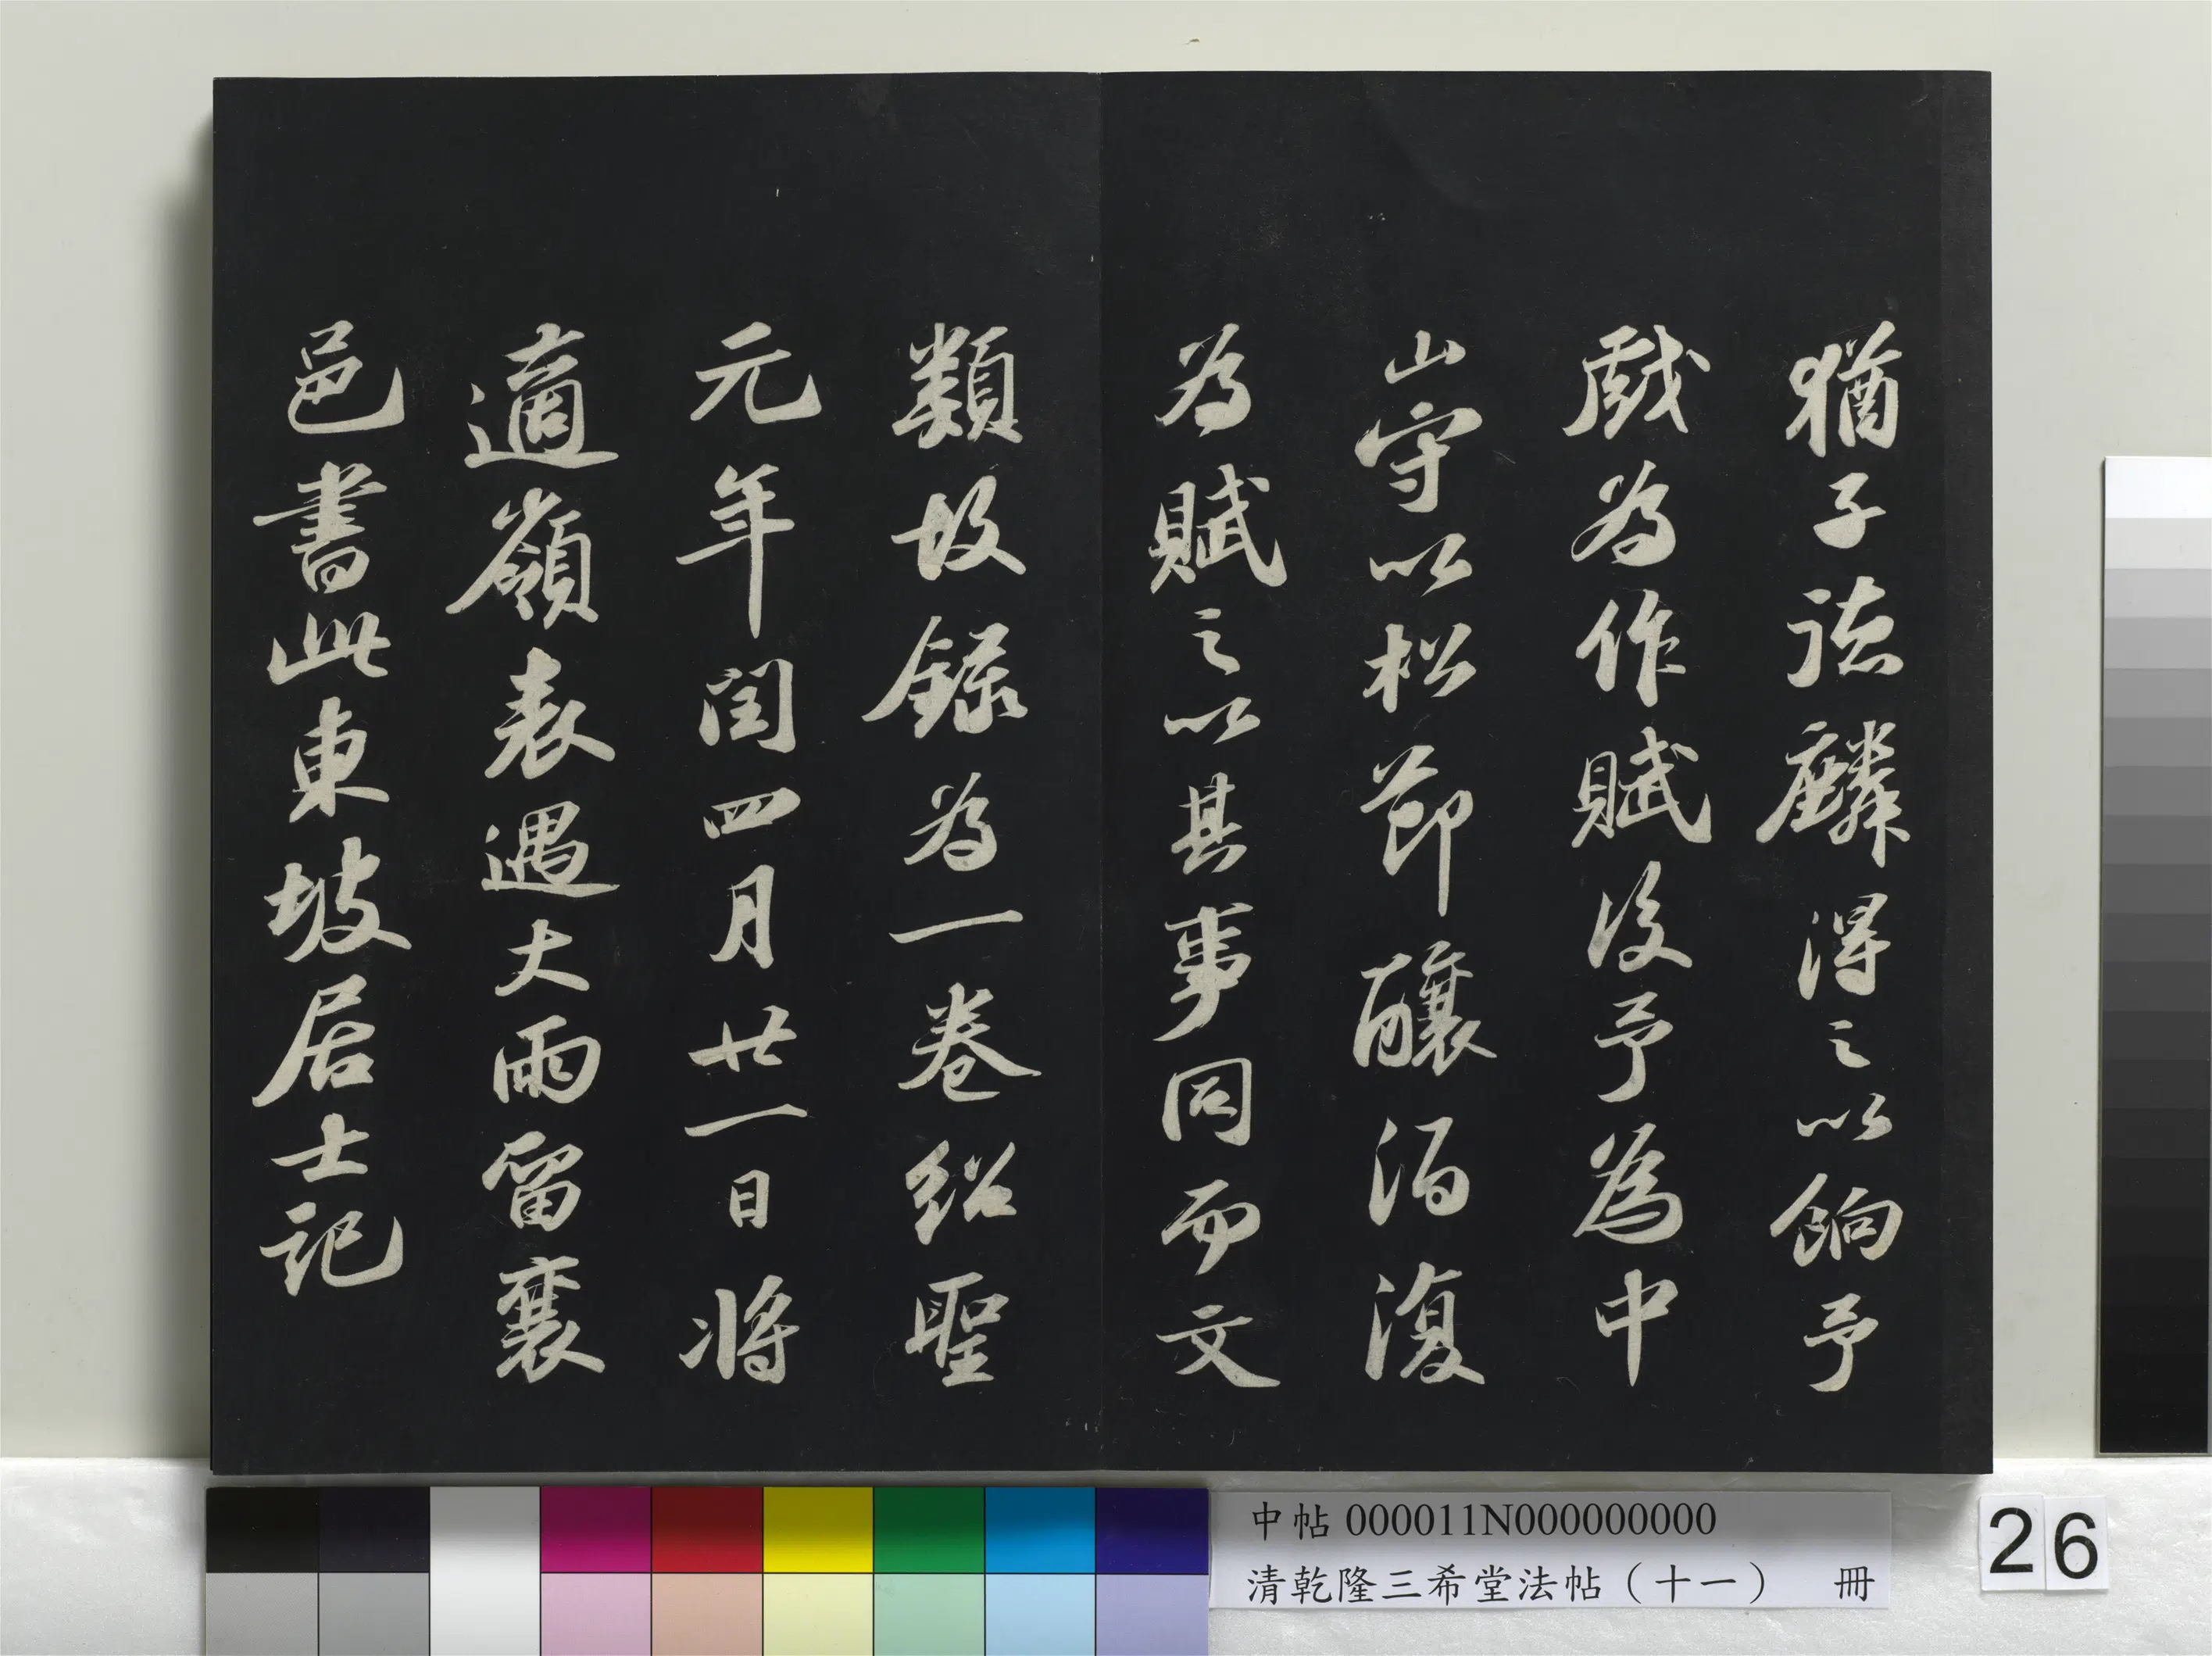 猶子德麟得之以餉予
戲為作賦後予為中
山守以松節釀酒復
為賦之以其事同而文
類故錄為一卷紹聖
元年閏四月廿一日將
適嶺表遇大雨留襄
邑書此東坡居士記
中帖 000011N000000000
清乾隆三希堂法帖（十一） 冊
26